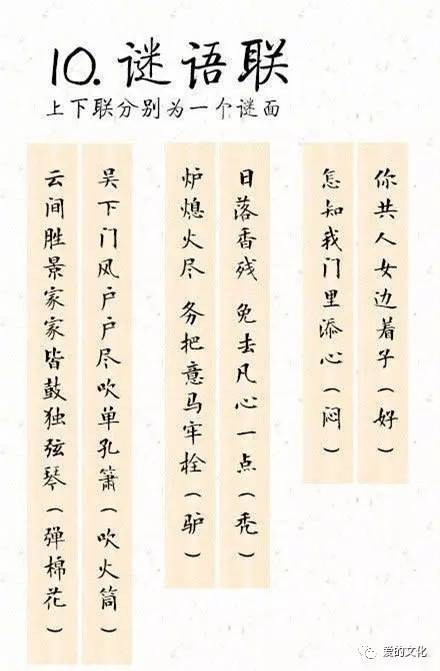 10.谜语联
上下联分别为一个谜面
你共人女边着子(好)
怎知我门里添心(闷)
日落香残 免去凡心一点(秃)
炉熄火尽 务把意马牢栓(驴)
吴下门风户户尽吹单孔箫(吹火筒)
云间胜景家家皆鼓独弦琴(弹棉花)
爱的文化